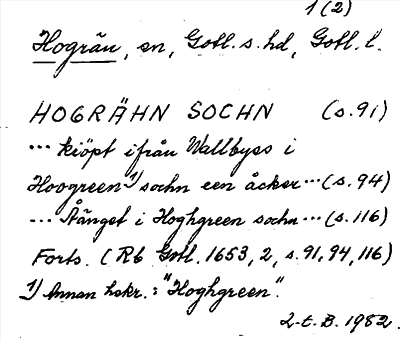 1(2)
Hogrän, sn, Gotl. s. hd, Gotl. l.
HOGRÄHN SOCHN (s. 91)
... kiöpt ifrån Wallbyss i
Hoogreen 1) sochn een åcker ... (s. 94)
... Åänget i Hoghgreen sochn ... (s. 116)
Forts. (Rb Gotl. 1653, 2, s. 91, 94, 116)
1) Annan hskr.: "Hoghgreen".
2-t. B. 1982.